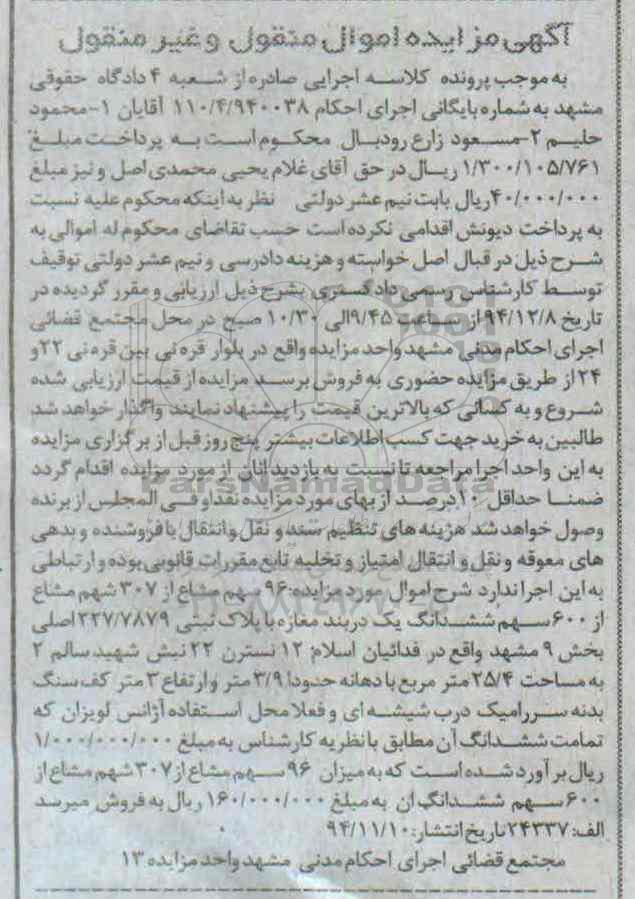 آگهی مزایده اموال منقول و غیر منقول
به موجب پرونده کلاسه اجرایی صادره از شعبه ۴ دادگاه حقوقی
مشهد به شماره بایگانی اجرای احکام ۱۱۰/۴/۹۴۰۰۳۸ آقایان ۱-محمود
حلیم ۲-مسعود زارع رودبال محکوم است به پرداخت مبلغ
۱/۳۰۰/۱۰۵/۷۶۱ ریال در حق آقای غلام یحیی محمدی اصل و نیز مبلغ
۴۰/۰۰۰/۰۰۰ ریال بابت نیم عشر دولتی نظر به اینکه محکوم علیه نسبت
به پرداخت دیونش اقدامی نکرده است حسب تقاضای محکوم له اموالی به
شرح ذیل در قبال اصل خواسته و هزینه دادرسی و نیم عشر دولتی توقیف
توسط کارشناس رسمی دادگستری بشرح ذیل ارزیابی و مقرر گردیده در
تاریخ ۹۴/۱۲/۸ از ساعت ۹/۴۵ الی ۱۰/۳۰ صبح در محل مجتمع قضائی
اجرای احکام مدنی مشهد واحد مزایده واقع در بلوار قره نی بین قره نی ۲۲ و
۲۴ از طریق مزایده حضوری به فروش برسد مزایده از قیمت ارزیابی شده
شروع و به کسانی که بالاترین قیمت را پیشنهاد نمایند واگذار خواهد شد
طالبین به خرید جهت کسب اطلاعات بیشتر پنج روز قبل از برگزاری مزایده
به این واحد اجرا مراجعه تا نسبت به بازدید آنان از مورد مزایده اقدام گردد
ضمنا حداقل ۱۰ درصد از بهای مورد مزایده نقدا و فی المجلس از برنده
وصول خواهد شد هزینه های تنظیم سند و نقل وانتقال با فروشنده و بدهی
های معوقه و نقل و انتقال امتیاز و تخلیه تابع مقررات قانونی بوده و ارتباطی
به این اجرا ندارد شرح اموال مورد مزایده: ۹۶ سهم مشاع از ۳۰۷ سهم مشاع
از ۶۰۰ سهم ششدانگ یک دربند مغازه با پلاک ثبتی ۲۲۷/۷۸۷۹ اصلی
بخش ۹ مشهد واقع در فدائیان اسلام ۱۲ نسترن ۲۲ نبش شهید سالم ۲
به مساحت ۲۵/۴ متر مربع با دهانه حدودا ۳/۹ متر و ارتفاع ۳ متر کف سنگ
بدنه سرامیک درب شیشه ای و فعلا محل استفاده آژانس لویزان که
تمامت ششدانگ آن مطابق با نظریه کارشناس به مبلغ ۱/۰۰۰/۰۰۰/۰۰۰
ریال بر آورد شده است که به میزان ۹۶ سهم مشاع از ۳۰۷ سهم مشاع از
۶۰۰ سهم ششدانگ آن به مبلغ ۱۶۰/۰۰۰/۰۰۰ ریال به فروش میرسد
الف: ۲۴۳۳۷ تاریخ انتشار: ۹۴/۱۱/۱۰
مجتمع قضائی اجرای احکام مدنی مشهد واحد مزایده ۱۳
ParsNamadData